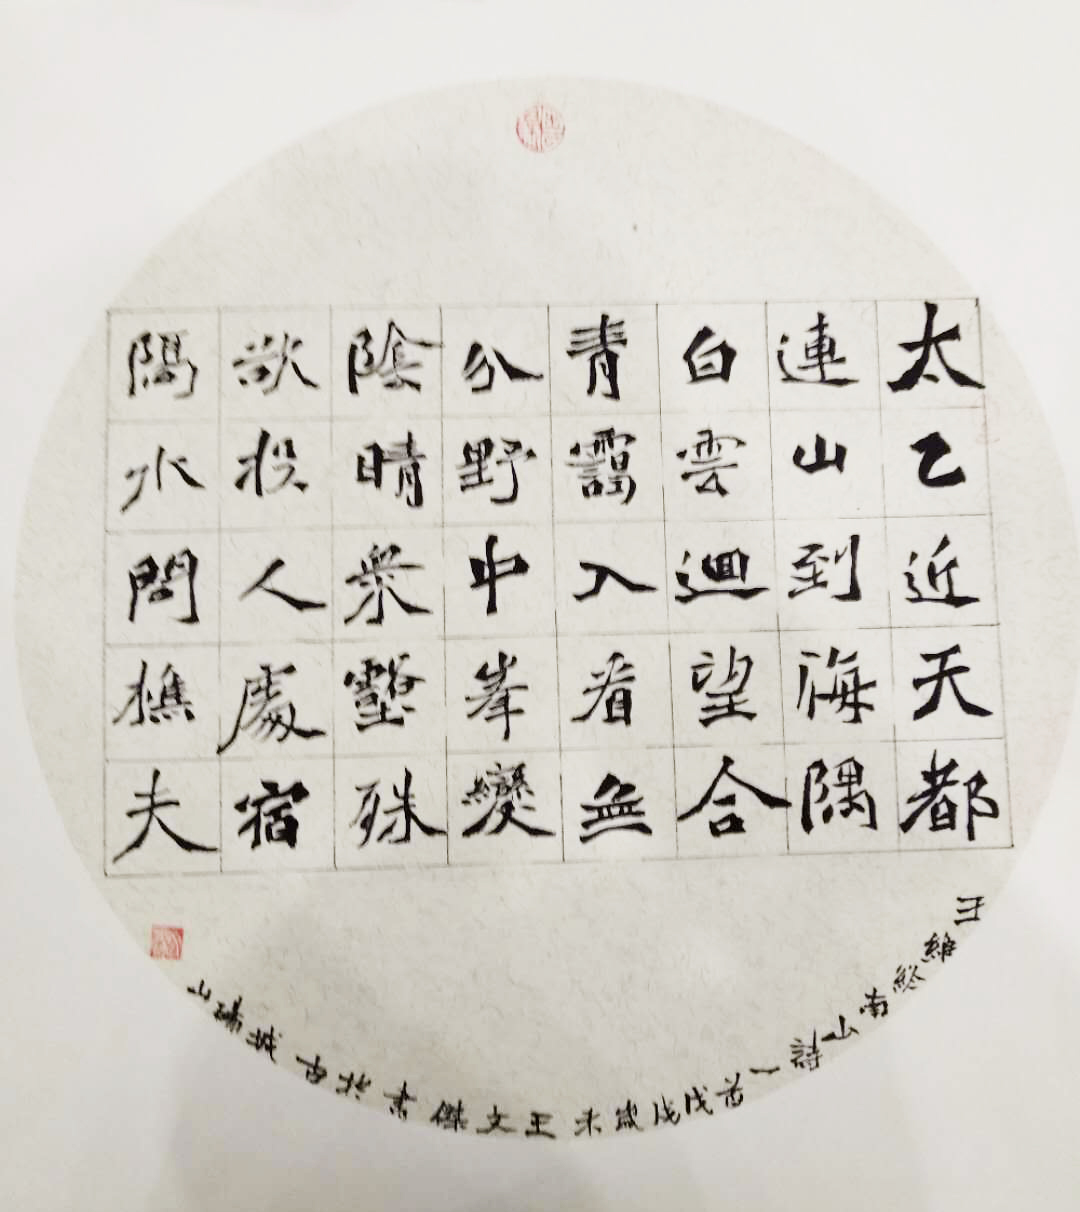 太乙近天都
連山到海隅
白雲迴望合
青靄入看無
分野中峯變
陰晴眾壑殊
欲投人處宿
隔水問樵夫
王維終南山詩一首戊戌歲末王文傑書於